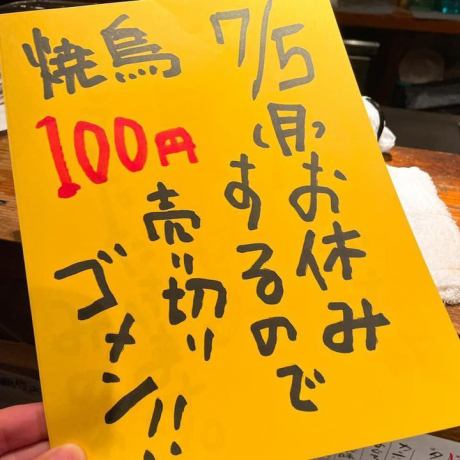 7/5
(月)お休み
するので
焼鳥
100円
売り切り
ゴメン!!